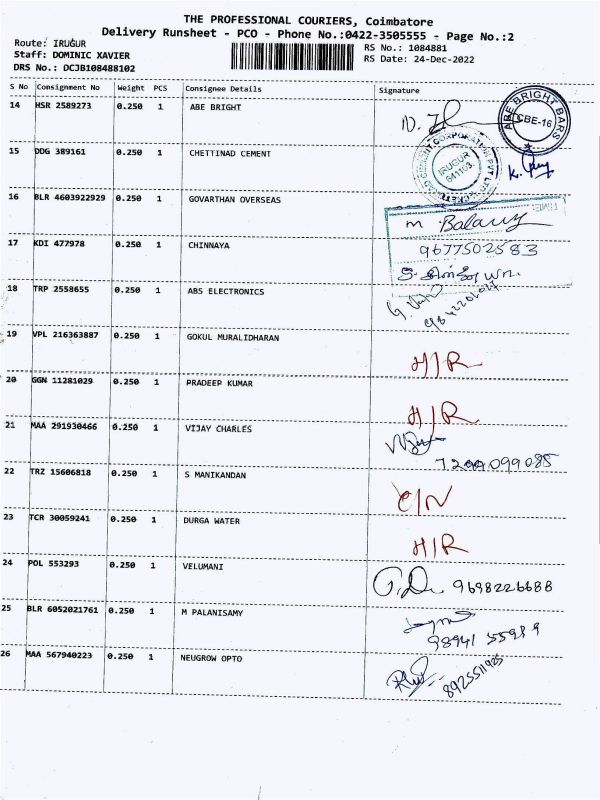 THE PROFESSIONAL COURIERS, Coimbatore
Delivery Runsheet - PCO - Phone No.:0422-3505555 - Page No.:2
Route: IRUGUR
Staff: DOMINIC XAVIER
DRS No.: DCJB108488102
RS No.: 1084881
RS Date: 24-Dec-2022
S No Consignment No Weight PCS Consignee Details Signature
14 HSR 2589273 0.250 1 ABE BRIGHT
ABE BRIGHT BARS
CBE-16
15 DDG 389161 0.250 1 CHETTINAD CEMENT
IRUGUR
641103
16 BLR 4603922929 0.250 1 GOVARTHAN OVERSEAS
TIME:
M Balany
17 KDI 477978 0.250 1 CHINNAYA
9677502583
18 TRP 2558655 0.250 1 ABS ELECTRONICS
19 VPL 216363887 0.250 1 GOKUL MURALIDHARAN
H/R
20 GGN 11281029 0.250 1 PRADEEP KUMAR
H/R
21 MAA 291930466 0.250 1 VIJAY CHARLES
7299099085
22 TRZ 15606818 0.250 1 S MANIKANDAN
C/N
23 TCR 30059241 0.250 1 DURGA WATER
H/R
24 POL 553293 0.250 1 VELUMANI
9698226688
25 BLR 6052021761 0.250 1 M PALANISAMY
98941 55989
26 MAA 567940223 0.250 1 NEUGROW OPTO
8925511925